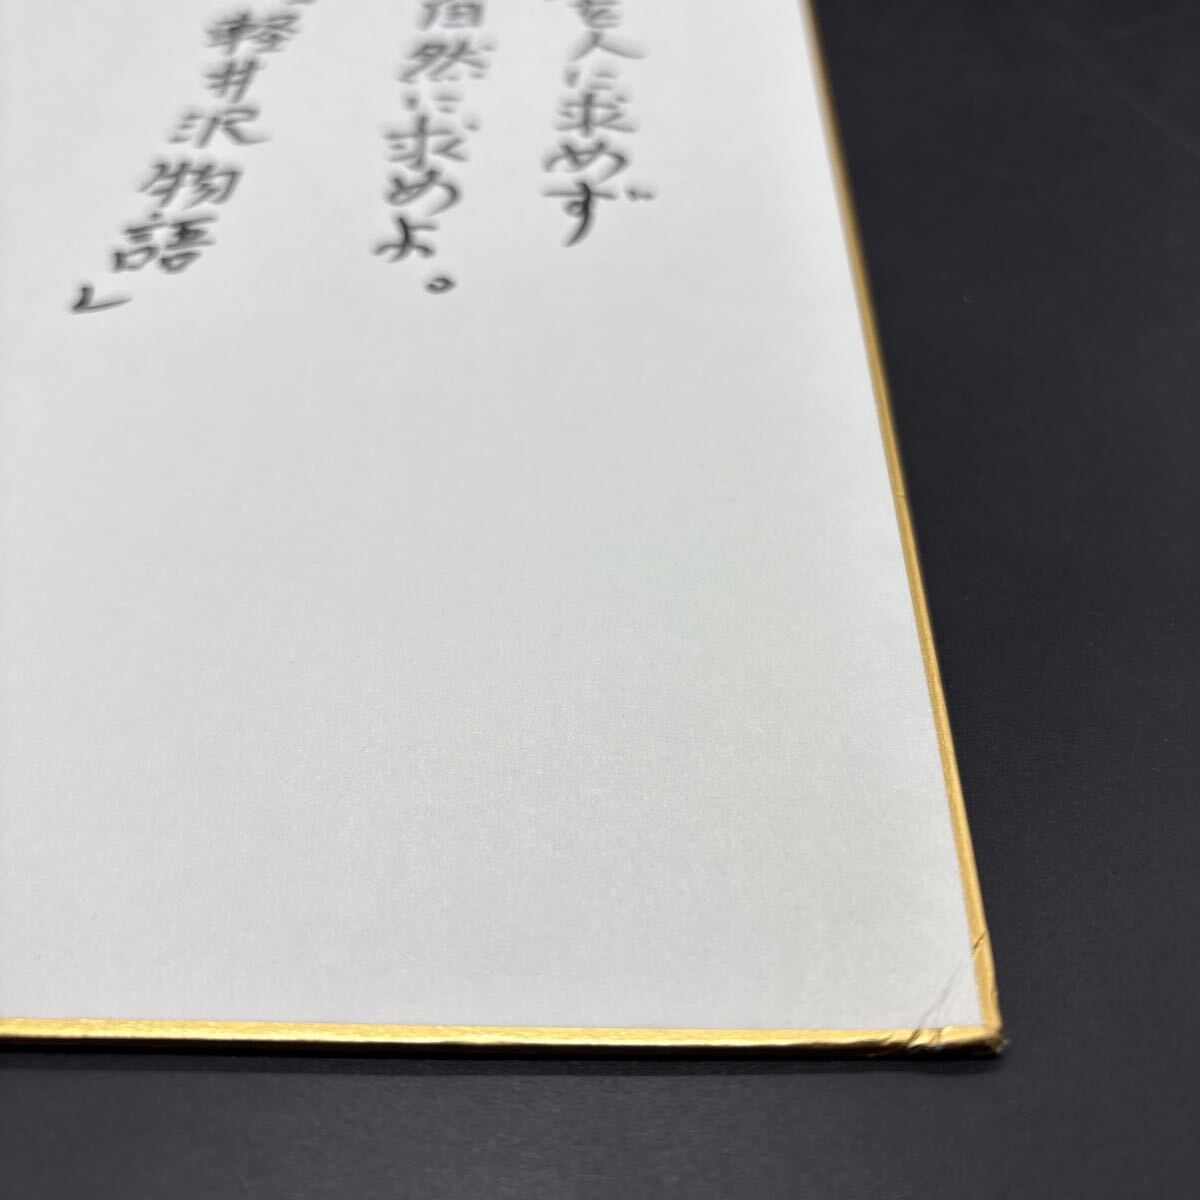 を人に求めず
自然に求めよ。
軽井沢物語」